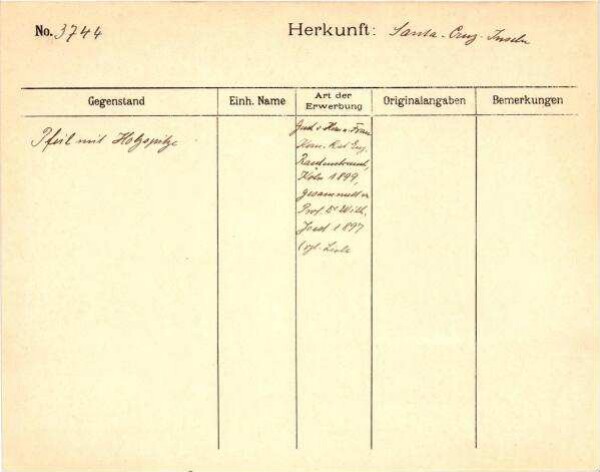 No. 3744 Herkunft: Santa-Cruz-Inseln
Gegenstand Einh. Name Art der Erwerbung Originalangaben Bemerkungen
Pfeil mit Holzspitze
Gesch. v. Herr u. Frau
Kom. Rat Eug.
Rautenstrauch,
Köln 1899,
gesammelt v.
Prof. Dr Wilh.
Joest 1897
(vgl. Liste